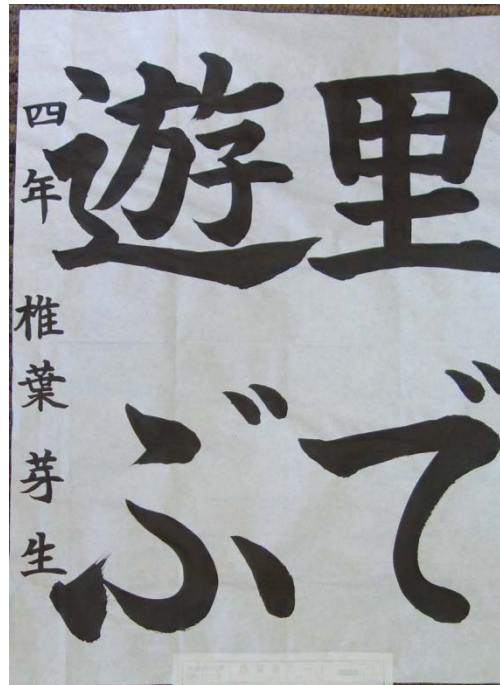 里で
遊ぶ
四年 椎葉芽生